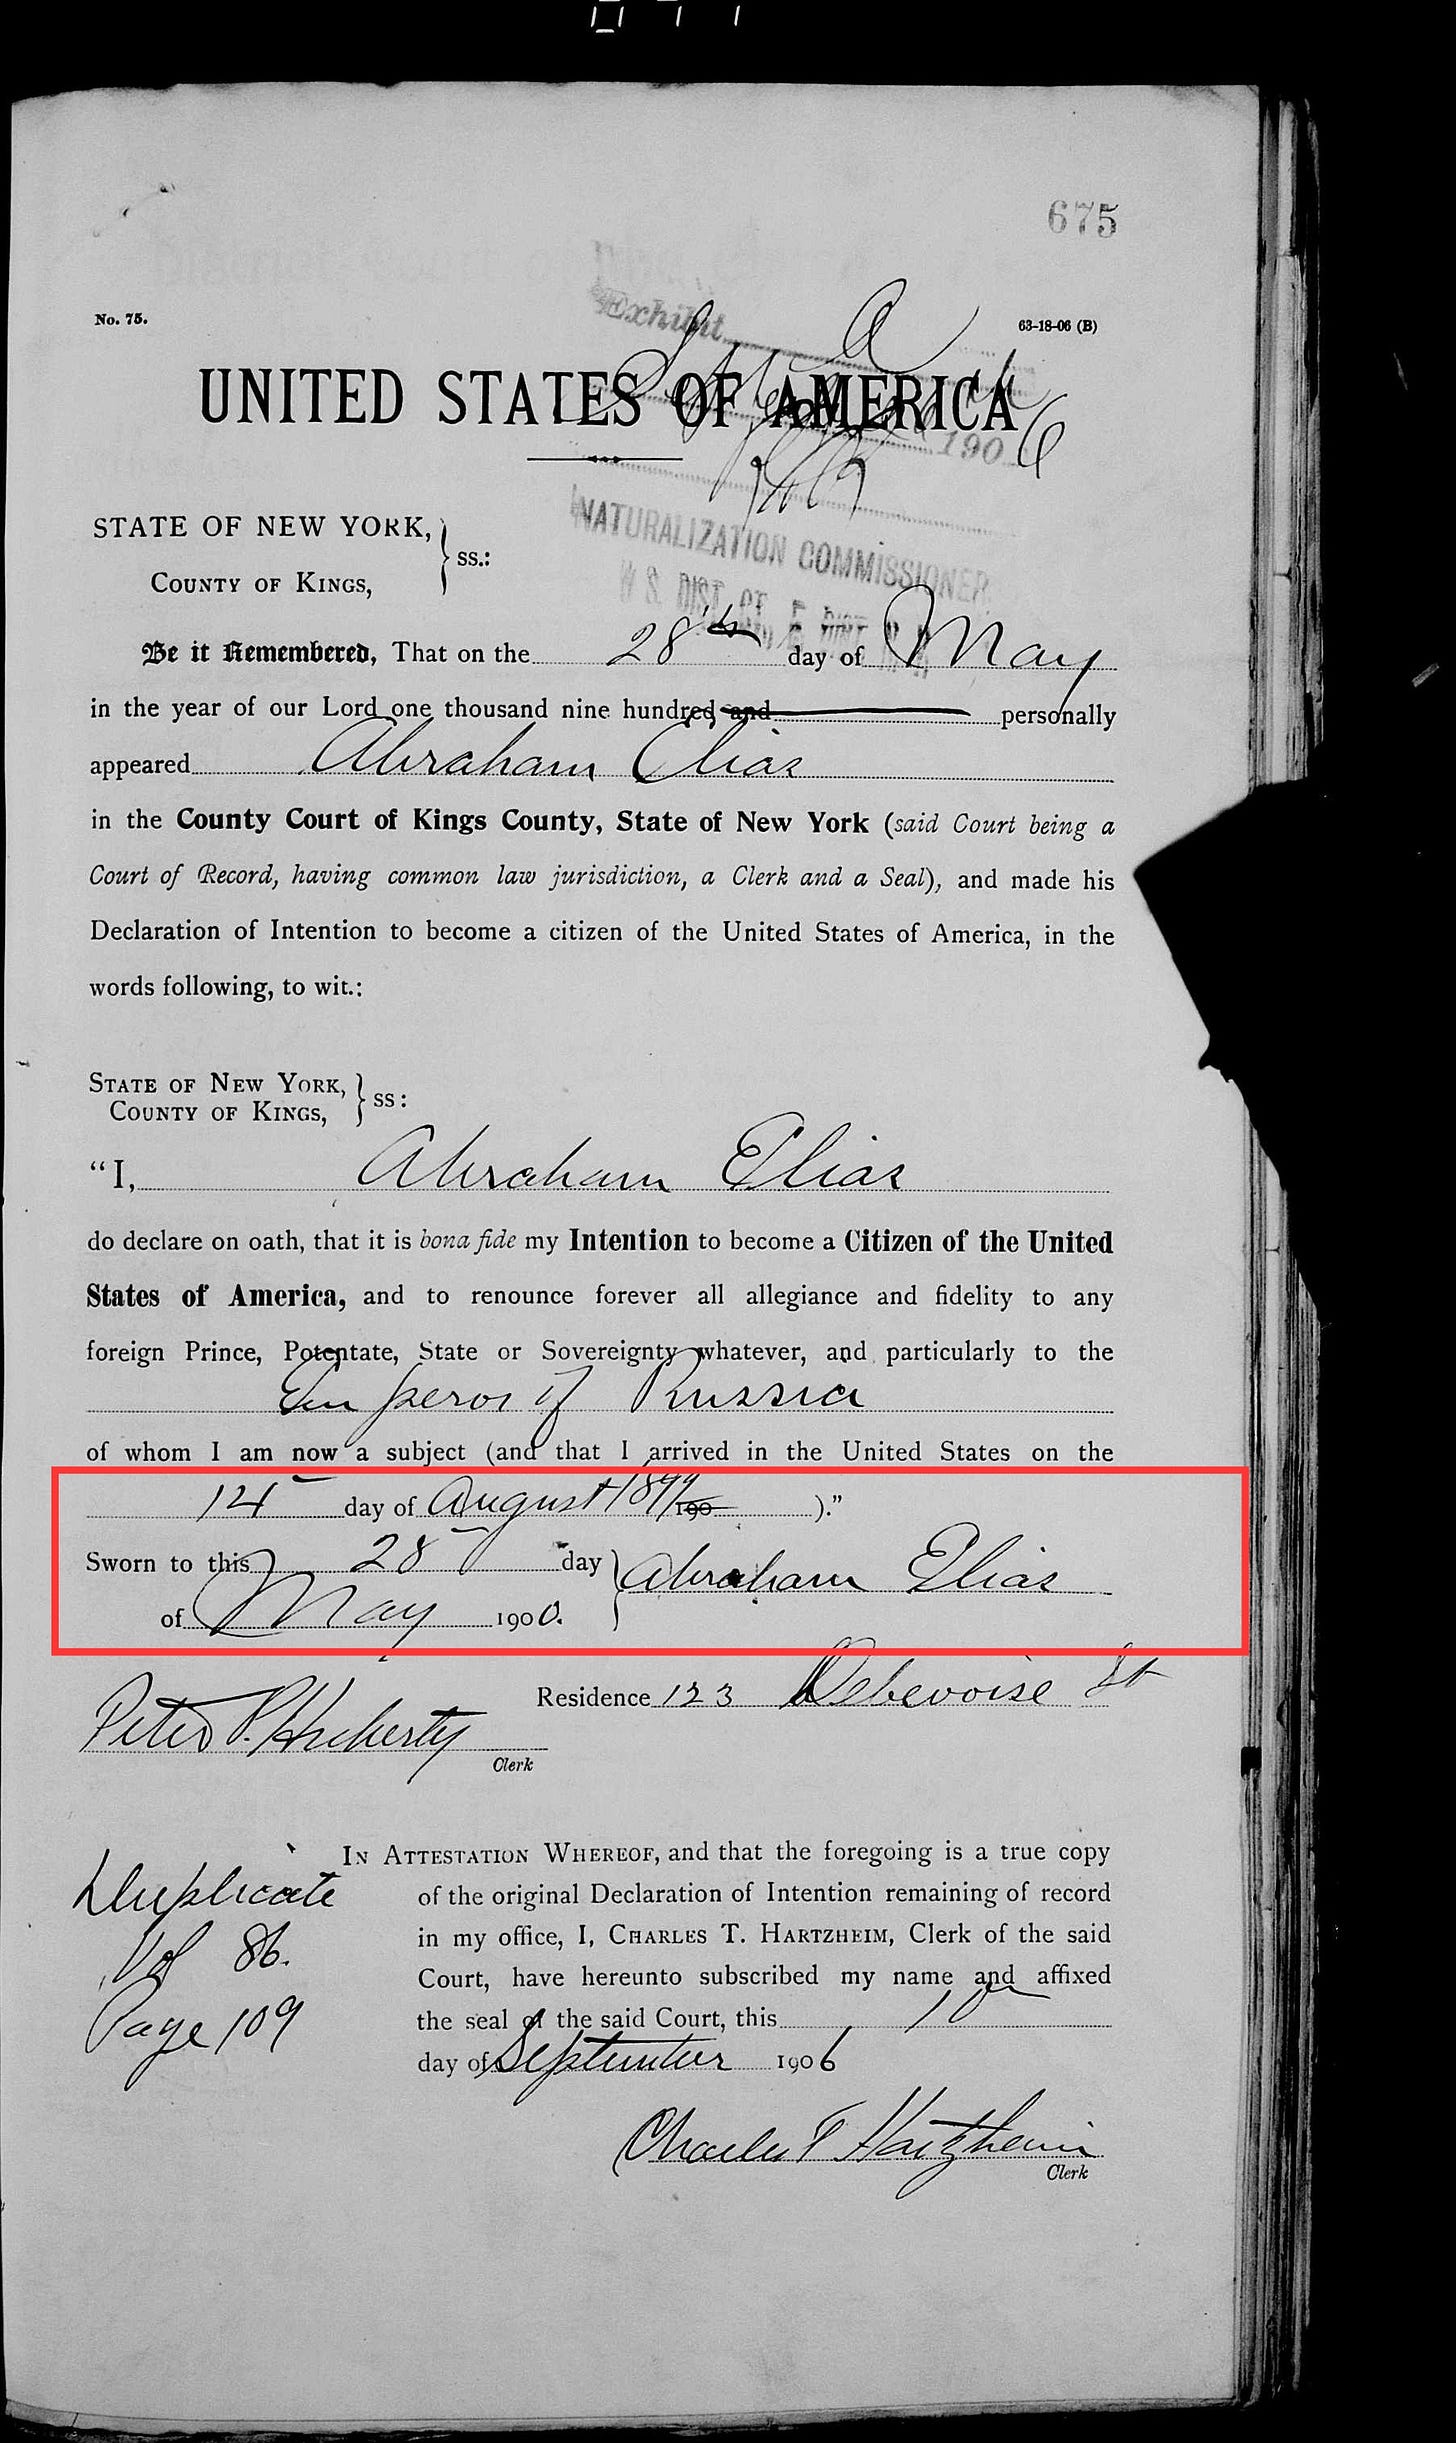 675
No. 75.
63-18-06 (B)
Exhibit A
UNITED STATES OF AMERICA
1906
NATURALIZATION COMMISSIONER
STATE OF NEW YORK,
COUNTY OF KINGS, } ss.:
Be it Remembered, That on the 28th day of May
in the year of our Lord one thousand nine hundred and personally
appeared Abraham Elias
in the County Court of Kings County, State of New York (said Court being a
Court of Record, having common law jurisdiction, a Clerk and a Seal), and made his
Declaration of Intention to become a citizen of the United States of America, in the
words following, to wit.:
STATE OF NEW YORK,
COUNTY OF KINGS, } ss:
“I, Abraham Elias
do declare on oath, that it is bona fide my Intention to become a Citizen of the United
States of America, and to renounce forever all allegiance and fidelity to any
foreign Prince, Potentate, State or Sovereignty whatever, and particularly to the
Emperor of Russia
of whom I am now a subject (and that I arrived in the United States on the
14 day of August 190 ).”
Sworn to this 28 day } Abraham Elias
of May 1900.
Residence 123 Debevoise St
Peter P.
Clerk
IN ATTESTATION WHEREOF, and that the foregoing is a true copy
of the original Declaration of Intention remaining of record
in my office, I, CHARLES T. HARTZHEIM, Clerk of the said
Court, have hereunto subscribed my name and affixed
the seal of the said Court, this 10
day of September 1906
Duplicate
Vol 86.
Page 109
Charles T Hartzheim
Clerk